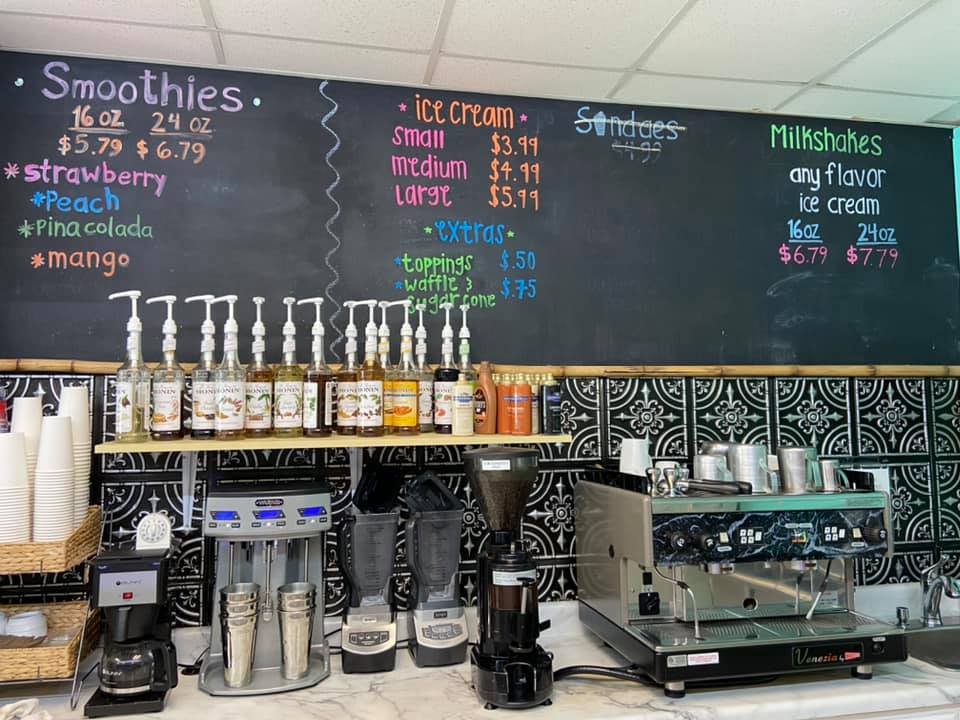 Smoothies
16 oz 24 oz
$5.79 $6.79
*strawberry
*Peach
*Pina colada
*mango
*ice cream*
small $3.99
medium $4.99
large $5.99
*extras*
*toppings $.50
*waffle & $.75
sugar cone
Sundaes
$4.99
Milkshakes
any flavor
ice cream
16oz 24oz
$6.79 $7.79
MONIN
MONIN
MONIN
MONIN
MONIN
MONIN
MONIN
MONIN
Venezia